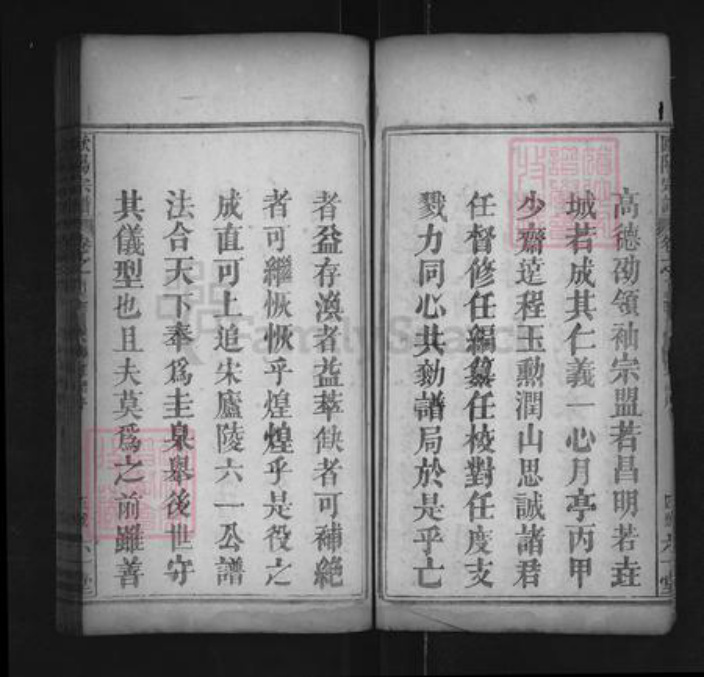 高德劭領袖宗盟若昌明若垚
城若成其仁義一心月亭丙甲
少齋達程玉勲潤山思誠諸君
任督修任編纂任校對任度支
戮力同心共勷譜局於是乎亡
者益存渙者益萃缺者可補絶
者可繼恢恢乎煌煌乎是役之
成直可上追宋廬陵六一公譜
法合天下奉爲圭臬舉後世守
其儀型也且夫莫爲之前雖善
FamilySearch